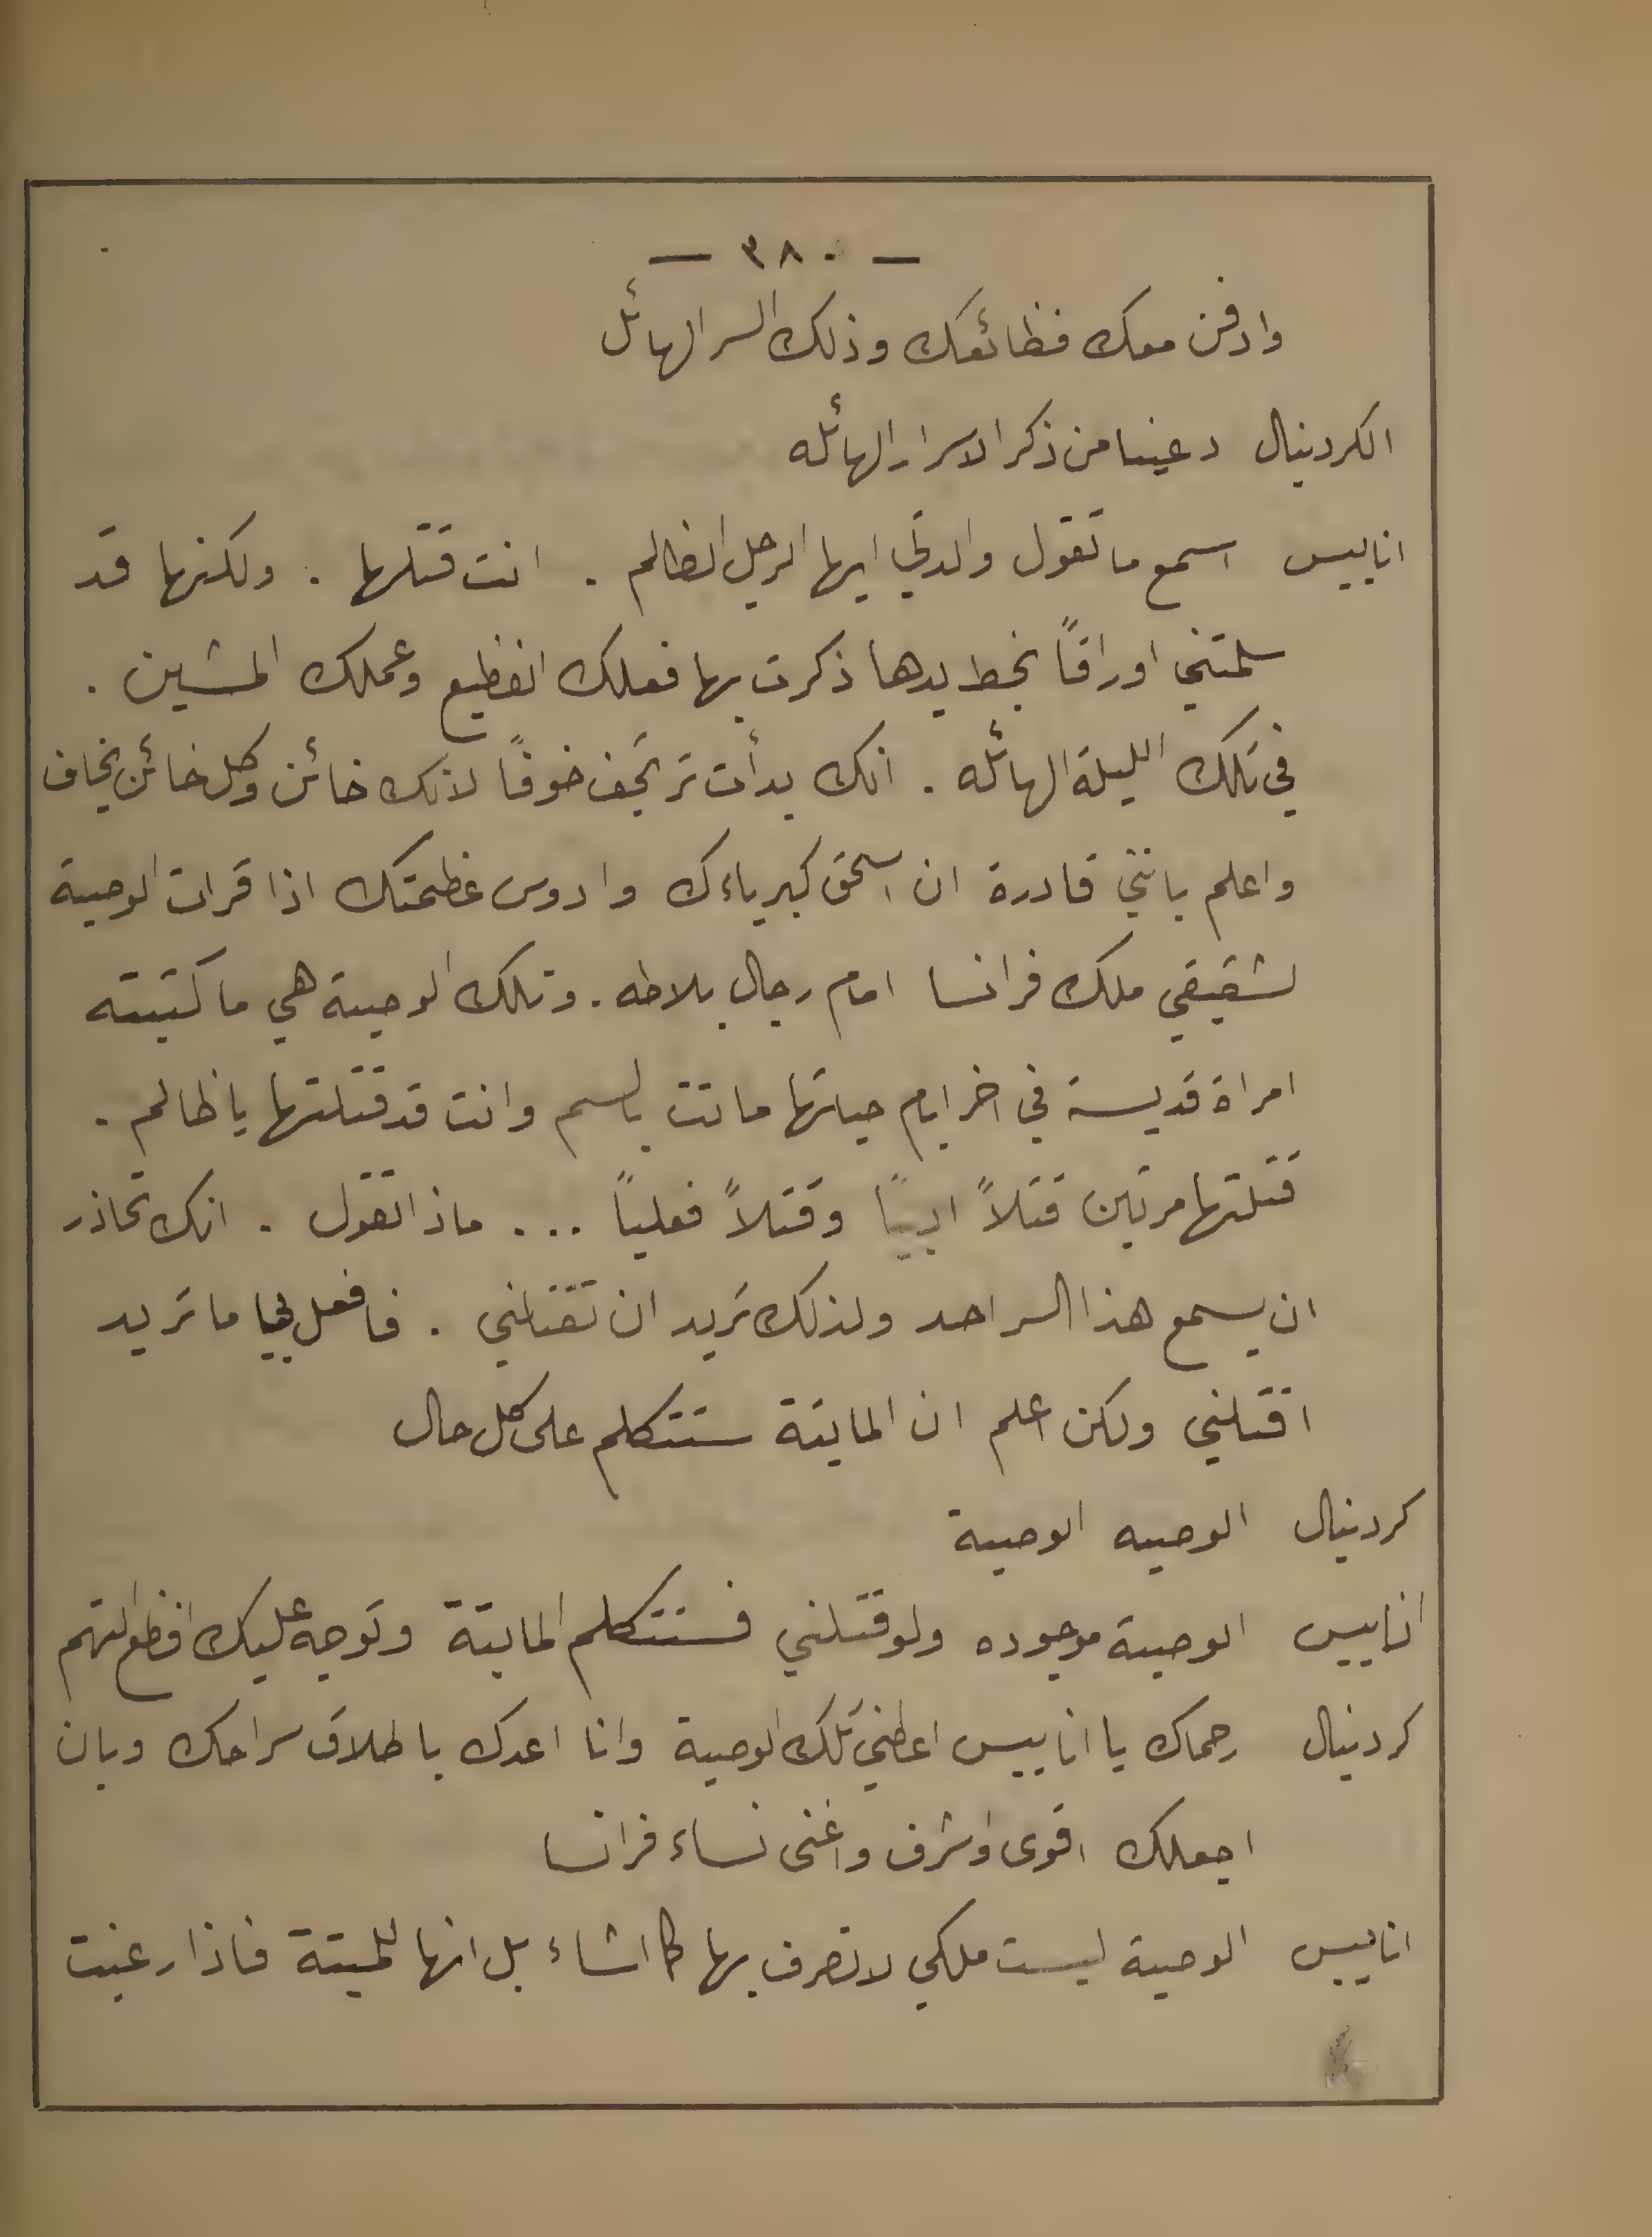 — ٣٨٠ —
وادفن معك فظائعك وذلك السر الهائل
الكردينال دعينا من ذكر الاسرار الهائله
اناييس اسمع ما تقول والدتي ايها الرجل الظالم . انت قتلتها . ولكنها قد
سلمتني اوراقاً بخط يدها ذكرت بها فعلك الفظيع وعملك المشين .
في تلك الليلة الهائله . انك بدأت ترتجف خوفاً لانك خائن وكل خائن يخاف
واعلم بانني قادرة ان اسحق كبرياءك وادوس عظمتك اذا قرات الوصية
لشقيقي ملك فرانسا امام رجال بلاطه . وتلك الوصية هي ما كتبته
امراة قديسة في اخر ايام حياتها ماتت بالسم وانت قد قتلتها يا ظالم .
قتلتها مرتين قتلاً ادبيًا وقتلاً فعلياً ... ماذا تقول . انك تحاذر
ان يسمع هذا السر احد ولذلك تريد ان تقتلني . فافعل بي ما تريد
اقتلني ولكن اعلم ان المايتة ستتكلم على كل حال
كردينال الوصيه الوصية
اناييس الوصية موجوده ولو قتلتني فستتكلم المايتة وتوجه عليك افظع التهم
كردينال رحماك يا اناييس اعطني تلك الوصية وانا اعدك باطلاق سراحك وبان
اجعلك اقوى واشرف واغنى نساء فرانسا
اناييس الوصية ليست ملكي لاتصرف بها كما اشاء بل انها للميتة فاذا رغبت